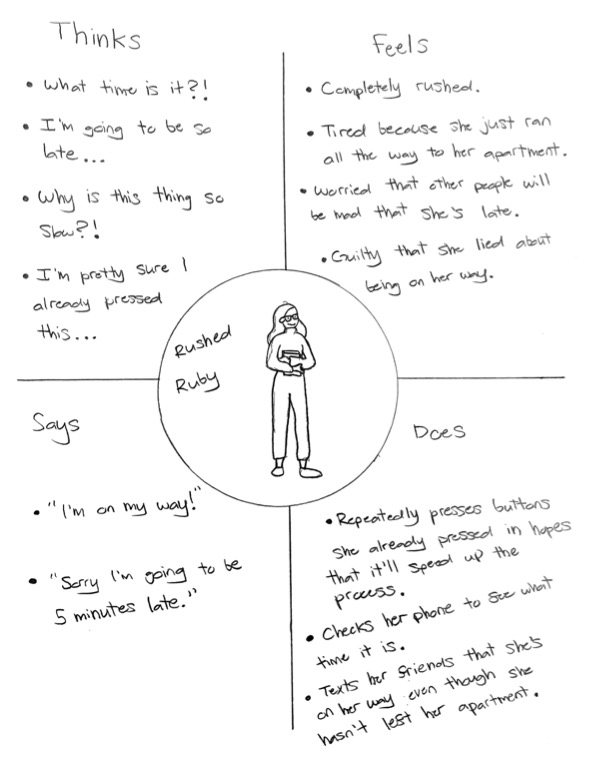 Thinks
• What time is it?!
• I'm going to be so
late...
• Why is this thing so
slow?!
• I'm pretty sure I
already pressed
this...
Feels
• Completely rushed.
• Tired because she just ran
all the way to her apartment.
• Worried that other people will
be mad that she's late.
• Guilty that she lied about
being on her way.
Rushed
Ruby
Says
• "I'm on my way!"
• "Sorry I'm going to be
5 minutes late."
Does
• Repeatedly presses buttons
she already pressed in hopes
that it'll speed up the
process.
• Checks her phone to see what
time it is.
• Texts her friends that she's
on her way even though she
hasn't left her apartment.